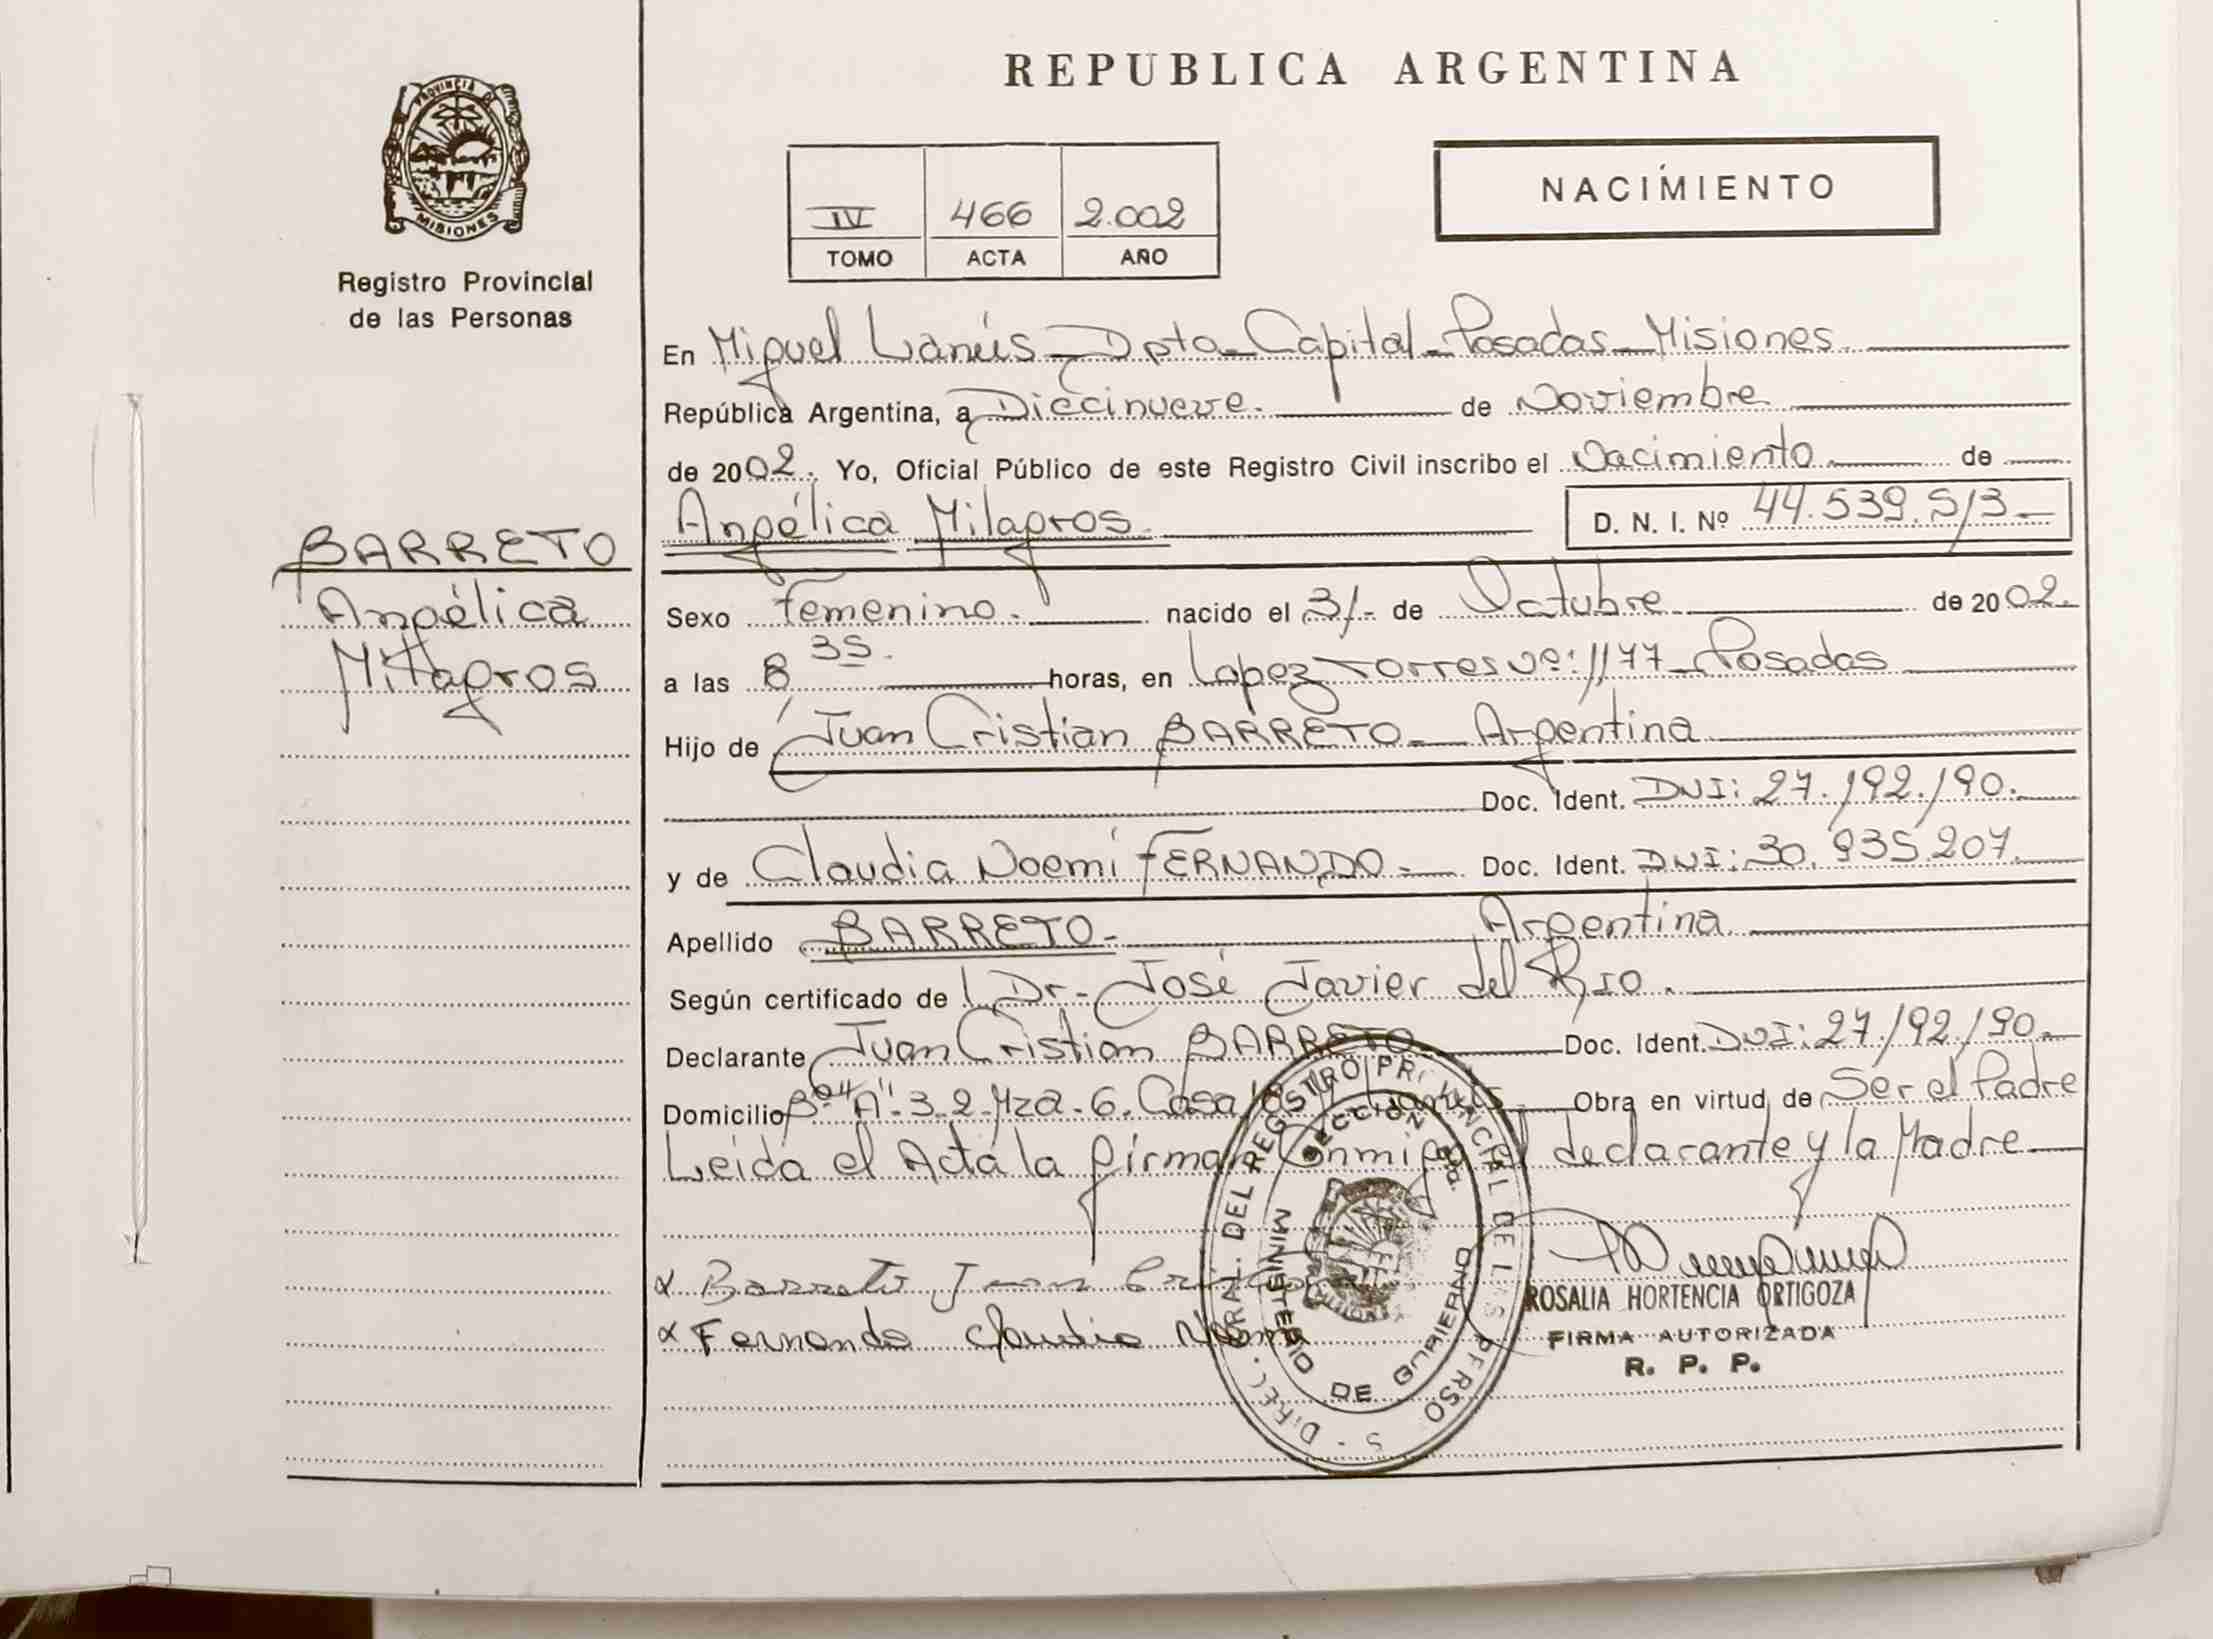 REPUBLICA ARGENTINA
PROVINCIA DE
MISIONES
Registro Provincial
de las Personas
IV 466 2.002
TOMO ACTA AÑO
NACIMIENTO
En Miguel Lanús - Dpto - Capital - Posadas - Misiones.
República Argentina, a Diecinueve. de Noviembre
de 2002. Yo, Oficial Público de este Registro Civil inscribo el Nacimiento de
Angélica Milagros. D. N. I. Nº 44.539.513
BARRETO
Angélica
Milagros
Sexo Femenino. nacido el 31- de Octubre de 2002.
a las 8 35. horas, en Lopez Torres Nº: 1177 - Posadas
Hijo de Juan Cristian BARRETO - Argentina
Doc. Ident. DNI: 27.192.190.
y de Claudia Noemí FERNANDO - Doc. Ident. DNI: 30.935.207.
Apellido BARRETO - Argentina
Según certificado de Dr. José Javier del Rio.
Declarante Juan Cristian BARRETO Doc. Ident. DNI: 27.192.190.
Domicilio Bº "A" 3-2-Mza-6. Casa Lanús Obra en virtud de Ser el Padre
Leída el Acta la firman Conmigo el declarante y la Madre
x Barreto Juan
x Fernando Claudia
ROSALIA HORTENCIA ORTIGOZA
FIRMA AUTORIZADA
R. P. P.
DIREC. GRAL. DEL REGISTRO PROVINCIAL DE LAS PERSO S
MINISTERIO DE GOBIERNO